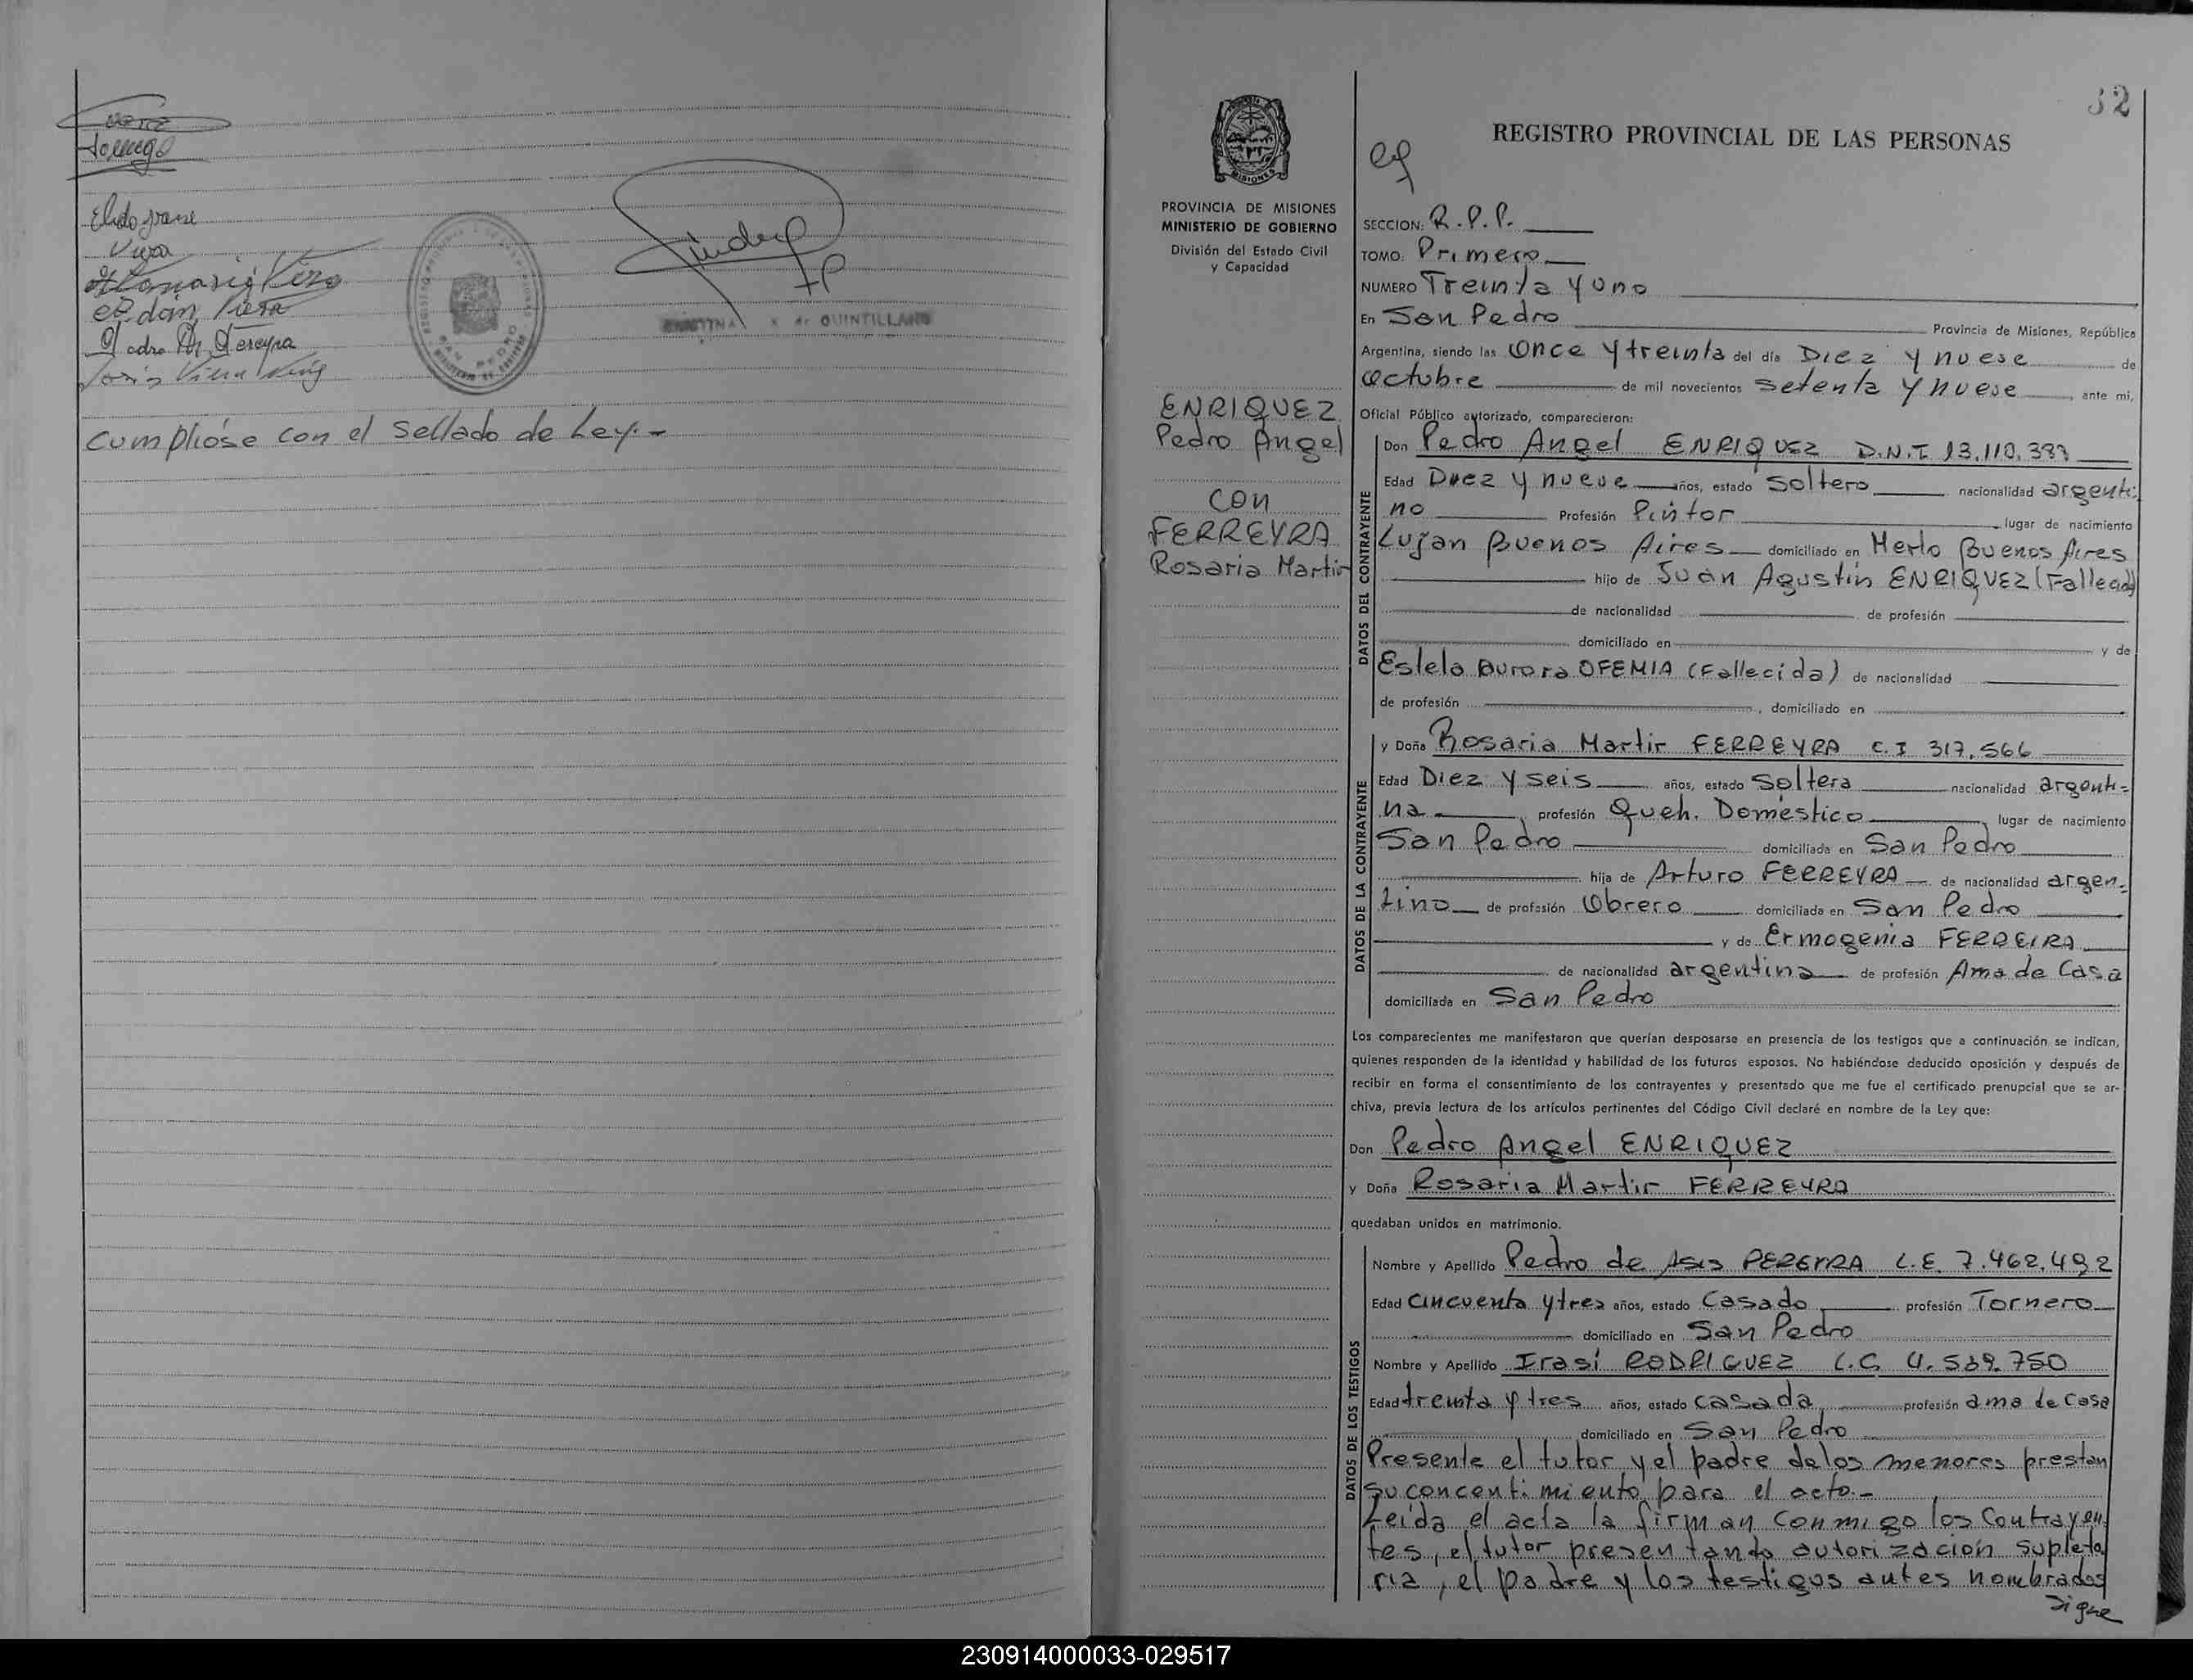 Elido
Viera
Pedro
Viera
Cumplióse con el Sellado de Ley.-
QUINTILLANO
SAN PEDRO
32
MISIONES
PROVINCIA DE MISIONES
MINISTERIO DE GOBIERNO
División del Estado Civil
y Capacidad
ENRIQUEZ
Pedro Angel
con
FERREYRA
Rosaria Martir
REGISTRO PROVINCIAL DE LAS PERSONAS
SECCION: R.P.P.
TOMO: Primero
NUMERO Treinta y uno
En San Pedro Provincia de Misiones, República
Argentina, siendo las once y treinta del día Diez y nueve de
octubre de mil novecientos setenta y nueve, ante mi,
Oficial Público autorizado, comparecieron:
DATOS DEL CONTRAYENTE
Don Pedro Angel ENRIQUEZ D.N.I 13.110.383
Edad Diez y nueve años, estado soltero nacionalidad argenti-
no Profesión Pintor lugar de nacimiento
Lujan Buenos Aires domiciliado en Merlo Buenos Aires
hijo de Juan Agustín ENRIQUEZ (Fallecido)
de nacionalidad de profesión
domiciliado en y de
Estela Aurora OFEMIA (Fallecida) de nacionalidad
de profesión , domiciliado en
DATOS DE LA CONTRAYENTE
y Doña Rosaria Martir FERREYRA C.I 317.566
Edad Diez y seis años, estado soltera nacionalidad argenti=
na profesión Queh. Doméstico lugar de nacimiento
San Pedro domiciliada en San Pedro
hija de Arturo FERREYRA de nacionalidad argen=
tino de profesión Obrero domiciliada en San Pedro
y de Ermogenia FERREIRA
de nacionalidad argentina de profesión Ama de Casa
domiciliada en San Pedro
Los comparecientes me manifestaron que querían desposarse en presencia de los testigos que a continuación se indican,
quienes responden de la identidad y habilidad de los futuros esposos. No habiéndose deducido oposición y después de
recibir en forma el consentimiento de los contrayentes y presentado que me fue el certificado prenupcial que se ar-
chiva, previa lectura de los artículos pertinentes del Código Civil declaré en nombre de la Ley que:
Don Pedro Angel ENRIQUEZ
y Doña Rosaria Martir FERREYRA
quedaban unidos en matrimonio.
DATOS DE LOS TESTIGOS
Nombre y Apellido Pedro de Asis PEREYRA L.E. 7.462.492
Edad cincuenta y tres años, estado Casado profesión Tornero
domiciliado en San Pedro
Nombre y Apellido Irasí RODRIGUEZ L.C. 4.539.750
Edad treinta y tres años, estado casada profesión ama de casa
domiciliado en San Pedro
Presente el tutor y el padre de los menores prestan
su concentimiento para el acto.-
Leída el acta la firman conmigo los contrayen
tes, el tutor presentando autorización supleto
ria, el padre y los testigos antes nombrados
sigue
230914000033-029517